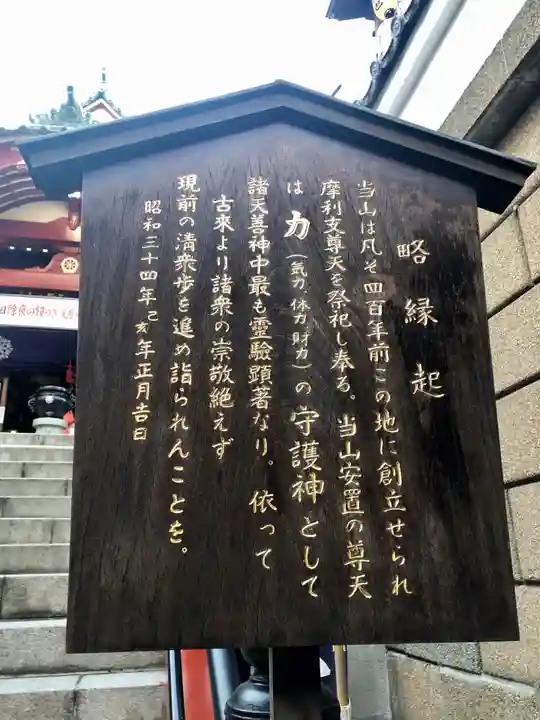 略縁起
当山は凡そ四百年前この地に創立せられ
摩利支尊天を祭祀し奉る。当山安置の尊天
は力(気力、体力、財力)の守護神として
諸天善神中最も霊験顕著なり。依って
古来より諸衆の崇敬絶えず
現前の清衆歩を進め詣られんことを。
昭和三十四年己亥年正月吉日